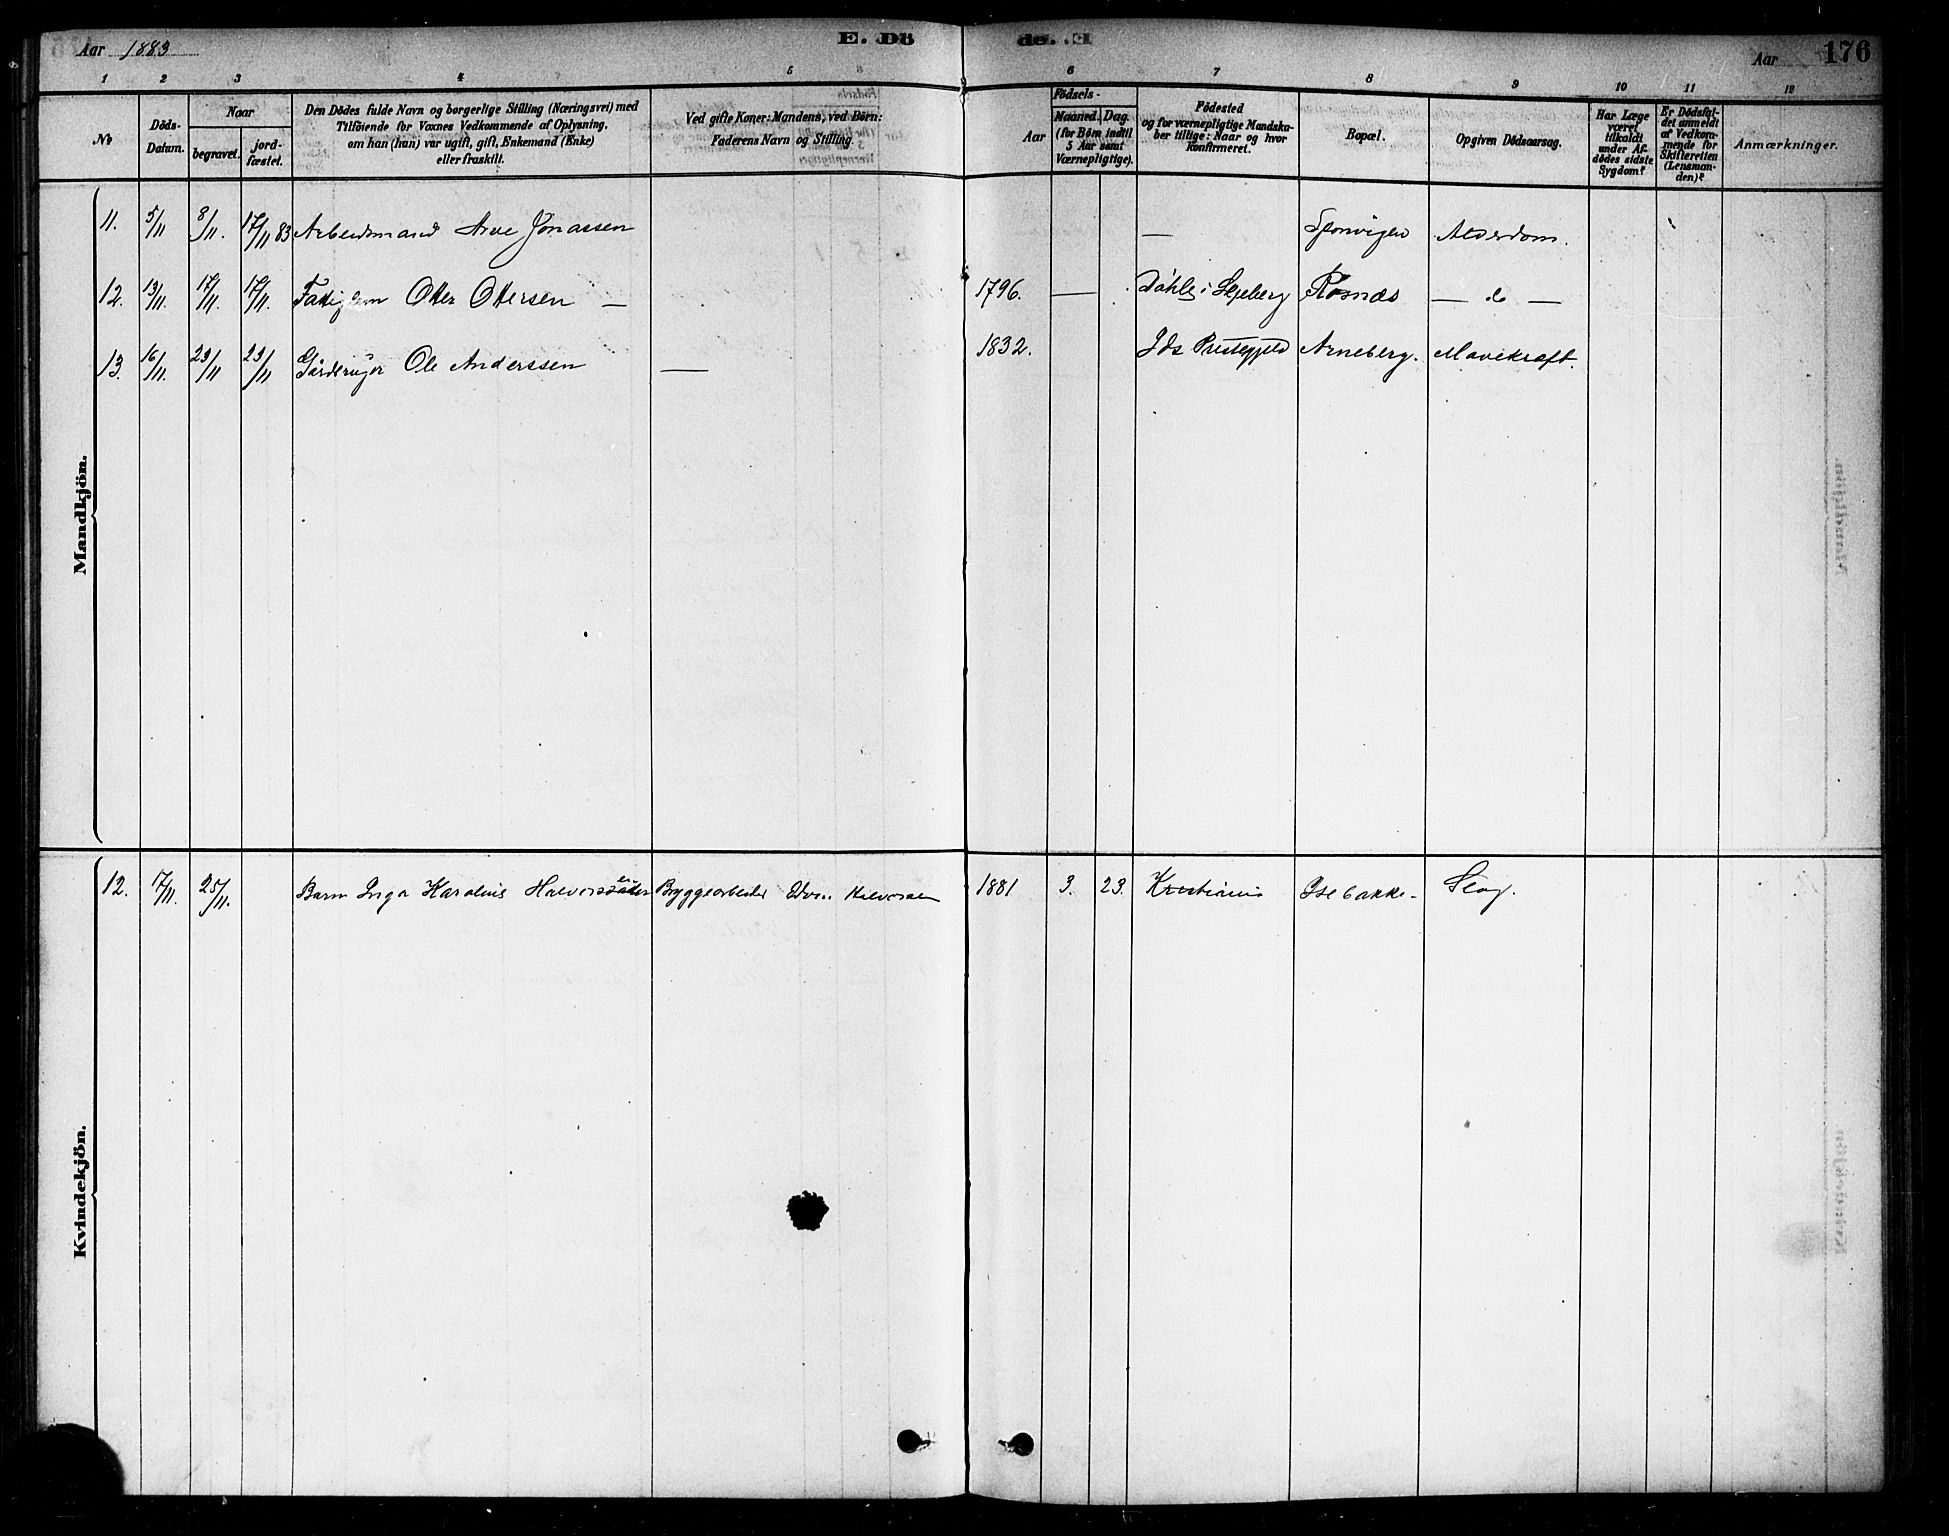 Aar 1883
E. Dö
de. E
Aar
176
1 2 3 4 5 6 7 8 9 10 11 12
No
Döds-Datum.
Naar
begravet.
jord-fæstet.
Den Dödes fulde Navn og borgerlige Stilling (Næringsvei) med
Tilföiende for Voxnes Vedkommende af Oplysning,
om han (hun) var ugift, gift, Enkemand (Enke)
eller fraskilt.
Ved gifte Koner: Mandens, ved Börn:
Faderens Navn og Stilling.
Födsels-
Aar
Maaned. Dag.
(for Börn indtil
5 Aar samt
Værnepligtige).
Födested
og for værnepligtige Mandska-
ber tillige: Naar og hvor
konfirmeret.
Bopæl.
Opgiven Dödsaarsag.
Har Læge
været
tilkaldt
under Af-
dödes sidste
Sygdom?
Er Dödsfal-
det anmeldt
af Vedkom-
mende for
Skifteretten
(Lensman-
den)?
Anmærkninger.
Mandkjön.
11. 5/11 8/11. 17/11 83 Arbeidsmand Arve Jonassen — Sponvigen Alderdom.
12. 13/11. 17/11. 17/11. Fattiglem Otter Ottersen — 1796. — Dahle i Skjeberg Rosnæs — do —
13. 16/11. 23/11 23/11 Gårdbruger Ole Anderssen — 1832. Ids Prestegjeld Arneberg. Mavekræft.
Kvindekjön.
12. 17/11. 25/11. Barn Inga Karoline Halvorsdatter Byggearbeider Halvorsen 1881 3. 23. Kristiania Isebakke Slag.